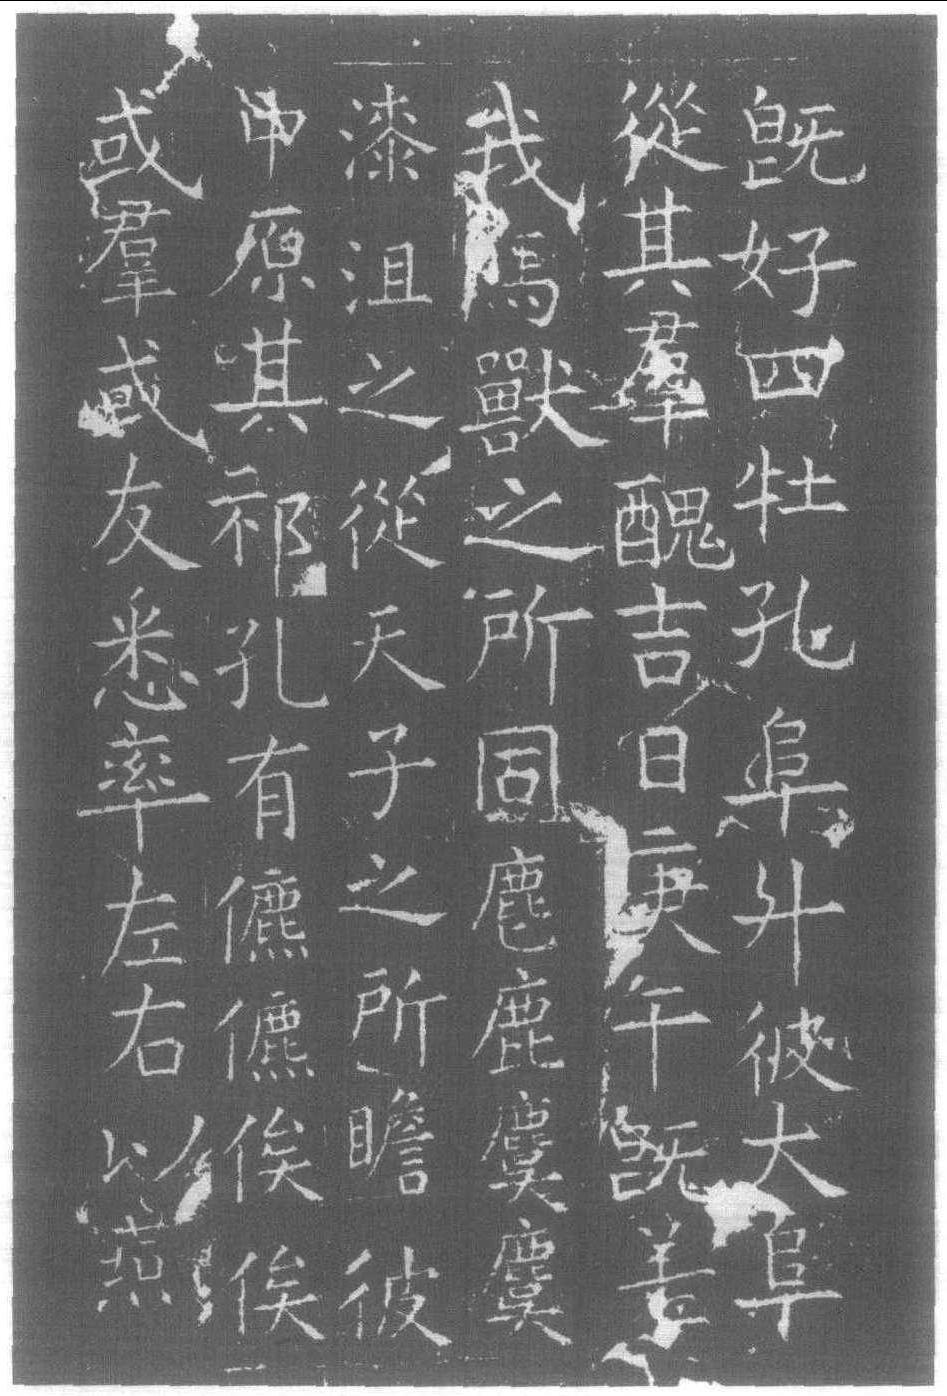 既好四牡孔阜升彼大阜
從其羣醜吉日庚午既差
我馬獸之所同麀鹿麌麌
漆沮之從天子之所瞻彼
中原其祁孔有儦儦俟俟
或羣或友悉率左右以燕